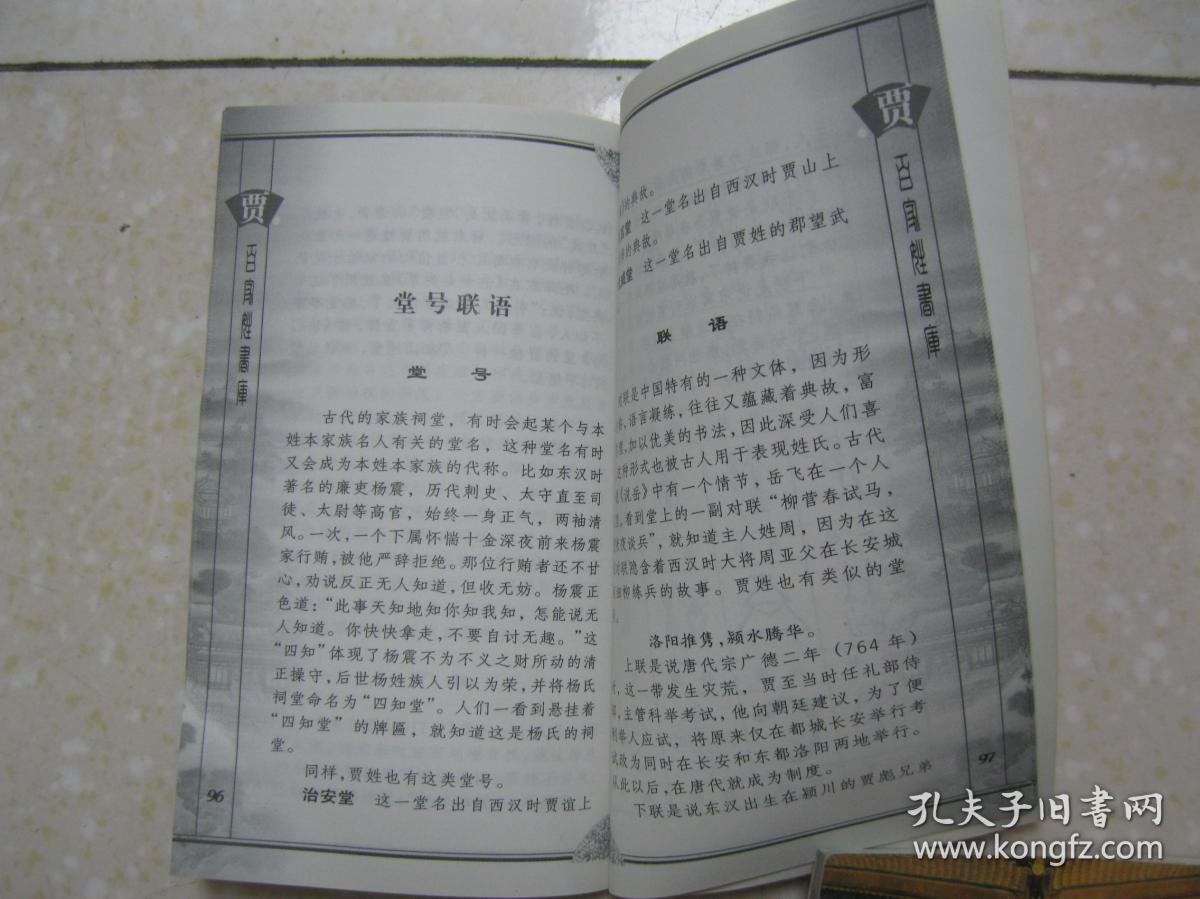 贾
百家姓書庫
堂号联语
堂 号
古代的家族祠堂，有时会起某个与本
姓本家族名人有关的堂名，这种堂名有时
又会成为本姓本家族的代称。比如东汉时
著名的廉吏杨震，历代刺史、太守直至司
徒、太尉等高官，始终一身正气，两袖清
风。一次，一个下属怀惴十金深夜前来杨震
家行贿，被他严辞拒绝。那位行贿者还不甘
心，劝说反正无人知道，但收无妨。杨震正
色道：“此事天知地知你知我知，怎能说无
人知道。你快快拿走，不要自讨无趣。”这
“四知”体现了杨震不为不义之财所动的清
正操守，后世杨姓族人引以为荣，并将杨氏
祠堂命名为“四知堂”。人们一看到悬挂着
“四知堂”的牌匾，就知道这是杨氏的祠
堂。
同样，贾姓也有这类堂号。
治安堂 这一堂名出自西汉时贾谊上
96
贾
百家姓書庫
的典故。
堂 这一堂名出自西汉时贾山上
的典故。
堂 这一堂名出自贾姓的郡望武
联 语
对联是中国特有的一种文体，因为形
，语言凝练，往往又蕴藏着典故，富
，加以优美的书法，因此深受人们喜
这种形式也被古人用于表现姓氏。古代
《说岳》中有一个情节，岳飞在一个人
，看到堂上的一副对联“柳营春试马，
夜谈兵”，就知道主人姓周，因为在这
对联隐含着西汉时大将周亚父在长安城
细柳练兵的故事。贾姓也有类似的堂
洛阳推隽，颍水腾华。
上联是说唐代宗广德二年（764年）
，这一带发生灾荒，贾至当时任礼部侍
，主管科举考试，他向朝廷建议，为了便
举人应试，将原来仅在都城长安举行考
试改为同时在长安和东都洛阳两地举行。
从此以后，在唐代就成为制度。
下联是说东汉出生在颍川的贾彪兄弟
97
孔夫子旧书网
www.kongfz.com